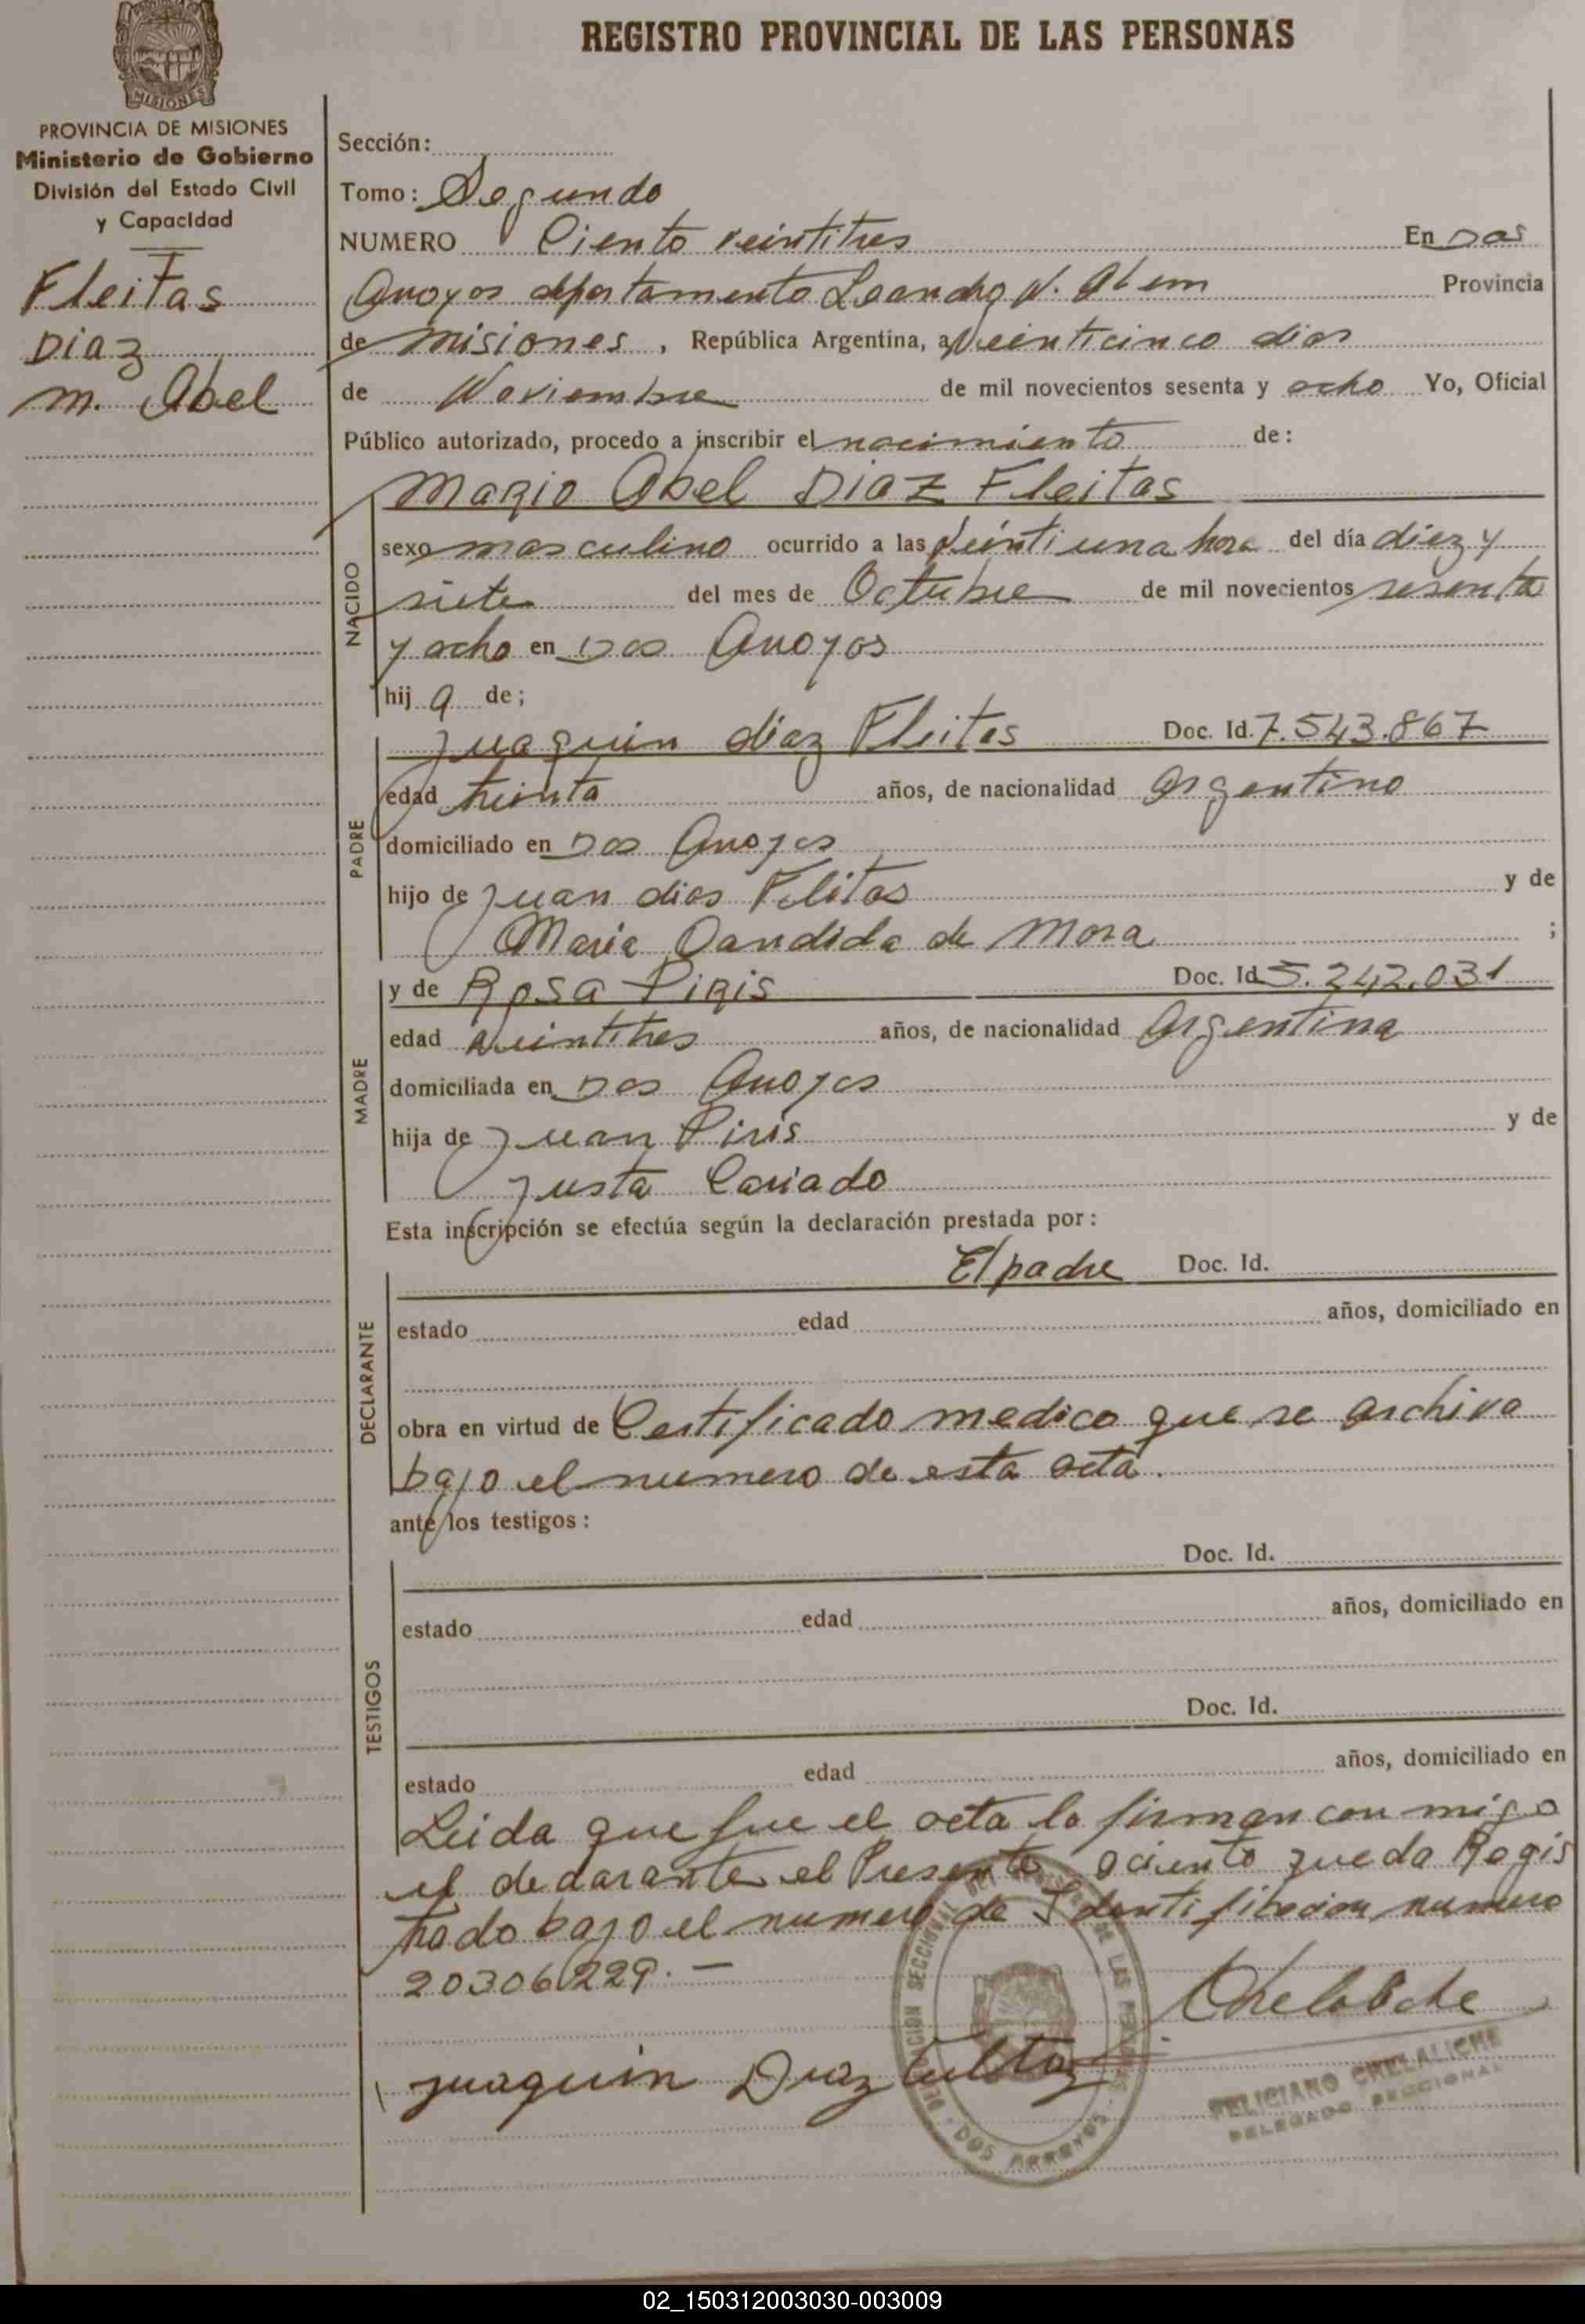 REGISTRO PROVINCIAL DE LAS PERSONAS
MISIONES
PROVINCIA DE MISIONES
Ministerio de Gobierno
División del Estado Civil
y Capacidad
Fleitas
Diaz
m. Abel
Sección:
Tomo: Segundo
NUMERO Ciento veintitres En Dos
Arroyos departamento Leandro N. Alem Provincia
de misiones, República Argentina, a veinticinco dias
de Noviembre de mil novecientos sesenta y ocho Yo, Oficial
Público autorizado, procedo a inscribir el nacimiento de:
Mario Abel Diaz Fleitas
NACIDO
sexo masculino ocurrido a las veinti una hora del día diez y
siete del mes de Octubre de mil novecientos sesenta
y ocho en Dos Arroyos
hij o de;
PADRE
Juaquin diaz Fleitas Doc. Id. 7.543.867
edad treinta años, de nacionalidad Argentino
domiciliado en Dos Arroyos
hijo de Juan dias Felitas y de
Maria Candida de Mora ;
MADRE
y de Rosa Piris Doc. Id 5.242.031
edad veintitres años, de nacionalidad Argentina
domiciliada en Dos Arroyos
hija de Juan Piris y de
Justa
Esta inscripción se efectúa según la declaración prestada por:
DECLARANTE
El padre Doc. Id.
estado edad años, domiciliado en
obra en virtud de Certificado medico que se archiva
bajo el numero de esta acta.
ante los testigos:
TESTIGOS
Doc. Id.
estado edad años, domiciliado en
Doc. Id.
estado edad años, domiciliado en
Leida que fue el acta la firman con migo
el declarante el Presente aciento queda Regis
trado bajo el numero de Identificacion numero
20306229.-
Chelaliche
Juaquin Diaz
FELICIANO CHELALICHE
DELEGADO SECCIONAL
DELEGACION SECCIONAL DE LAS PERSONAS
DOS ARROYOS
02_150312003030-003009